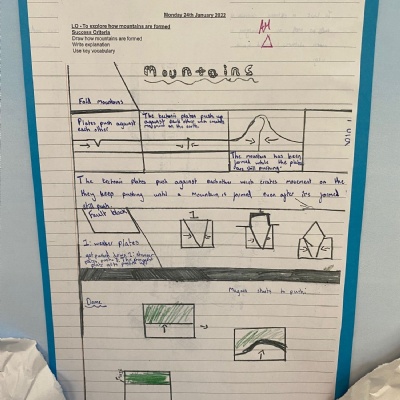 Monday 24th January 2022
LO - To explore how mountains are formed
Success Criteria
Draw how mountains are formed
Write explanation
Use key vocabulary
Mountains
Fold mountains
Plates push against
each other
The tectonic plates push up
against each other which creates
movement on the earth.
The mountain has been
formed while the plates
are still pushing
The tectonic plates push against eachother which crates movement on the
they keep pushing until a mountain is formed even after it's formed
still push.
Fault block
1
1: weaker plates
Magma starts to push
Dome